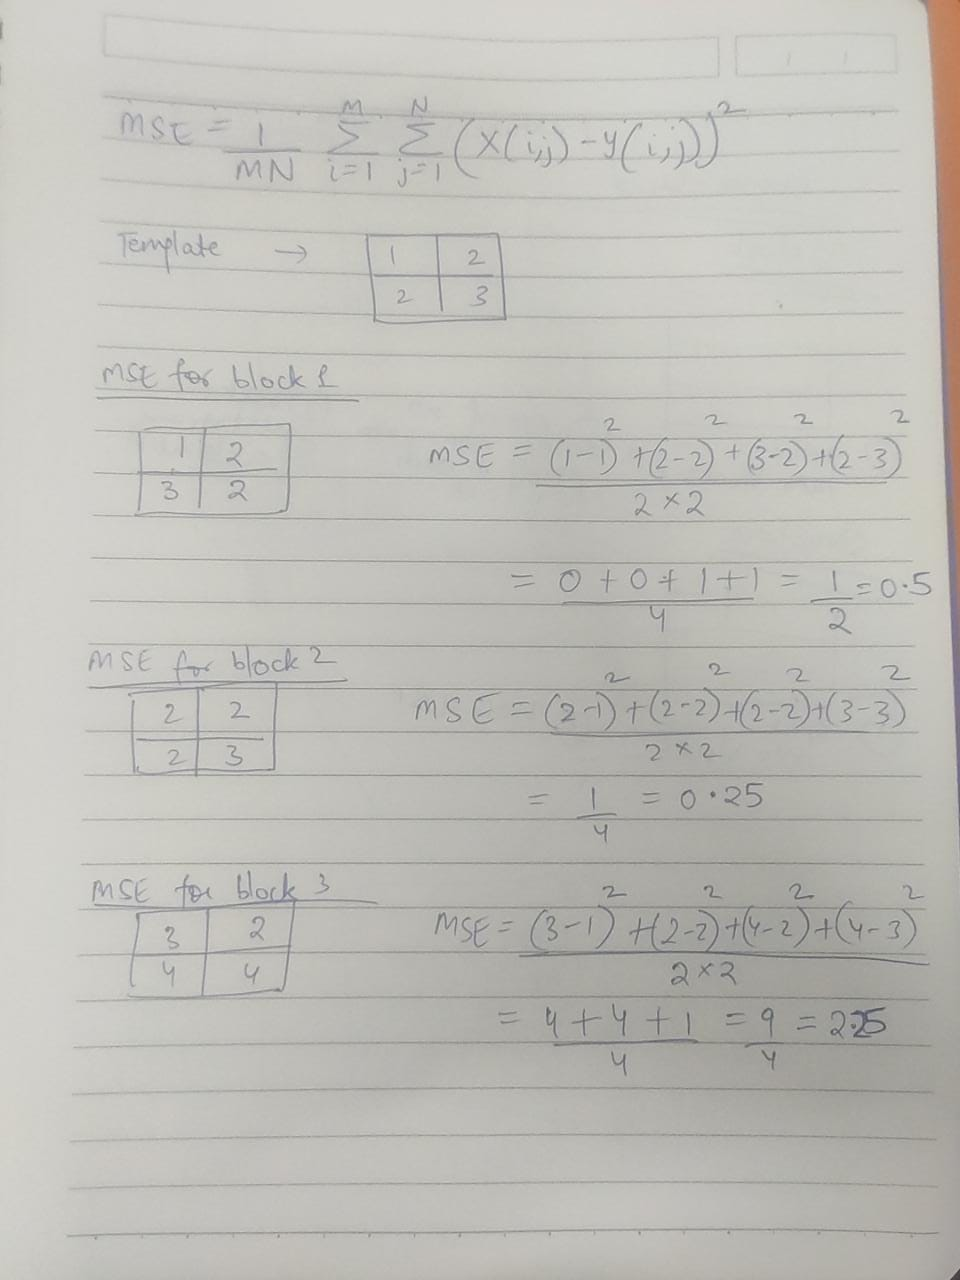 MSE = 1/MN M∑i=1 N∑j=1 (x(i,j) - y(i,j))²
Template → 1 2
2 3
MSE for block 1
1 2
3 2
MSE = (1-1)² + (2-2)² + (3-2)² + (2-3)² / 2 × 2
= 0 + 0 + 1 + 1 / 4 = 1/2 = 0.5
MSE for block 2
2 2
2 3
MSE = (2-1)² + (2-2)² + (2-2)² + (3-3)² / 2 × 2
= 1/4 = 0.25
MSE for block 3
3 2
4 4
MSE = (3-1)² + (2-2)² + (4-2)² + (4-3)² / 2 × 2
= 4 + 4 + 1 / 4 = 9/4 = 2.25